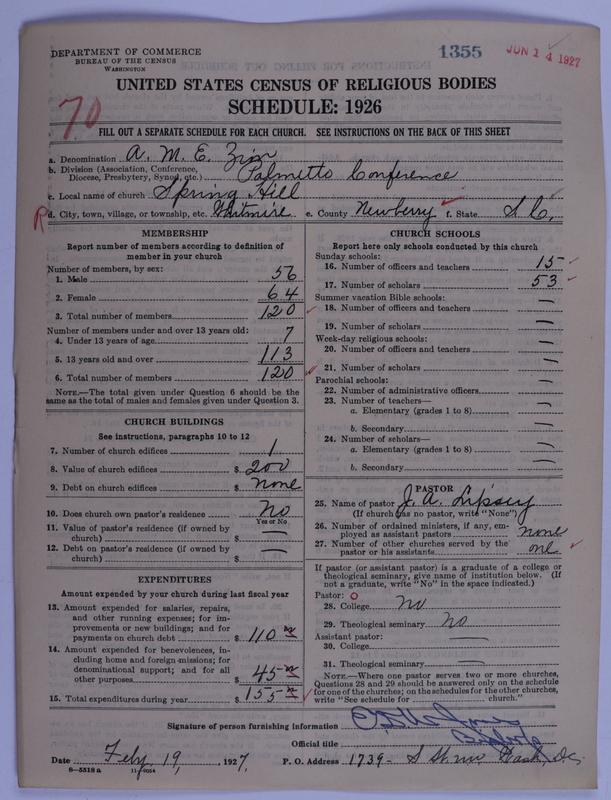 DEPARTMENT OF COMMERCE
BUREAU OF THE CENSUS
WASHINGTON
1355
JUN 14 1927
UNITED STATES CENSUS OF RELIGIOUS BODIES
SCHEDULE: 1926
70
FILL OUT A SEPARATE SCHEDULE FOR EACH CHURCH. SEE INSTRUCTIONS ON THE BACK OF THIS SHEET
a. Denomination A. M. E. Zion
b. Division (Association, Conference, Diocese, Presbytery, Synod, etc.) Palmetto Conference
c. Local name of church Spring Hill
R d. City, town, village, or township, etc. Whitmire e. County Newberry f. State S. C.
MEMBERSHIP
Report number of members according to definition of
member in your church
Number of members, by sex:
1. Male 56
2. Female 64
3. Total number of members 120
Number of members under and over 13 years old:
4. Under 13 years of age 7
5. 13 years old and over 113
6. Total number of members 120
NOTE.—The total given under Question 6 should be
same as the total of males and females given under Question 3.
CHURCH BUILDINGS
See instructions, paragraphs 10 to 12
7. Number of church edifices 1
8. Value of church edifices $ 200
9. Debt on church edifices $ none
10. Does church own pastor's residence No
Yes or No
11. Value of pastor's residence (if owned by
church) $ —
12. Debt on pastor's residence (if owned by
church) $ —
EXPENDITURES
Amount expended by your church during last fiscal year
13. Amount expended for salaries, repairs,
and other running expenses; for im-
provements or new buildings; and for
payments on church debt $ 110
14. Amount expended for benevolences, in-
cluding home and foreign missions; for
denominational support; and for all
other purposes $ 45
15. Total expenditures during year $ 155
CHURCH SCHOOLS
Report here only schools conducted by this church
Sunday schools:
16. Number of officers and teachers 15
17. Number of scholars 53
Summer vacation Bible schools:
18. Number of officers and teachers —
19. Number of scholars —
Week-day religious schools:
20. Number of officers and teachers —
21. Number of scholars —
Parochial schools:
22. Number of administrative officers —
23. Number of teachers—
a. Elementary (grades 1 to 8) —
b. Secondary —
24. Number of scholars—
a. Elementary (grades 1 to 8) —
b. Secondary —
PASTOR
25. Name of pastor J. A. Lipsey
(If church has no pastor, write "None")
26. Number of ordained ministers, if any, em-
ployed as assistant pastors none
27. Number of other churches served by the
pastor or his assistants one
If pastor (or assistant pastor) is a graduate of a college or
theological seminary, give name of institution below. (If
not a graduate, write "No" in the space indicated.)
Pastor: O
28. College No
29. Theological seminary No
Assistant pastor:
30. College —
31. Theological seminary —
NOTE.—Where one pastor serves two or more churches,
Questions 28 and 29 should be answered only on the schedule
for one of the churches; on the schedules for the other churches,
write "See schedule for church."
Signature of person furnishing information
Official title Bishop
Date Feby 19, 1927. P. O. Address 1739- S St. nw Wash, D.C.
8—5518 a 11—9054